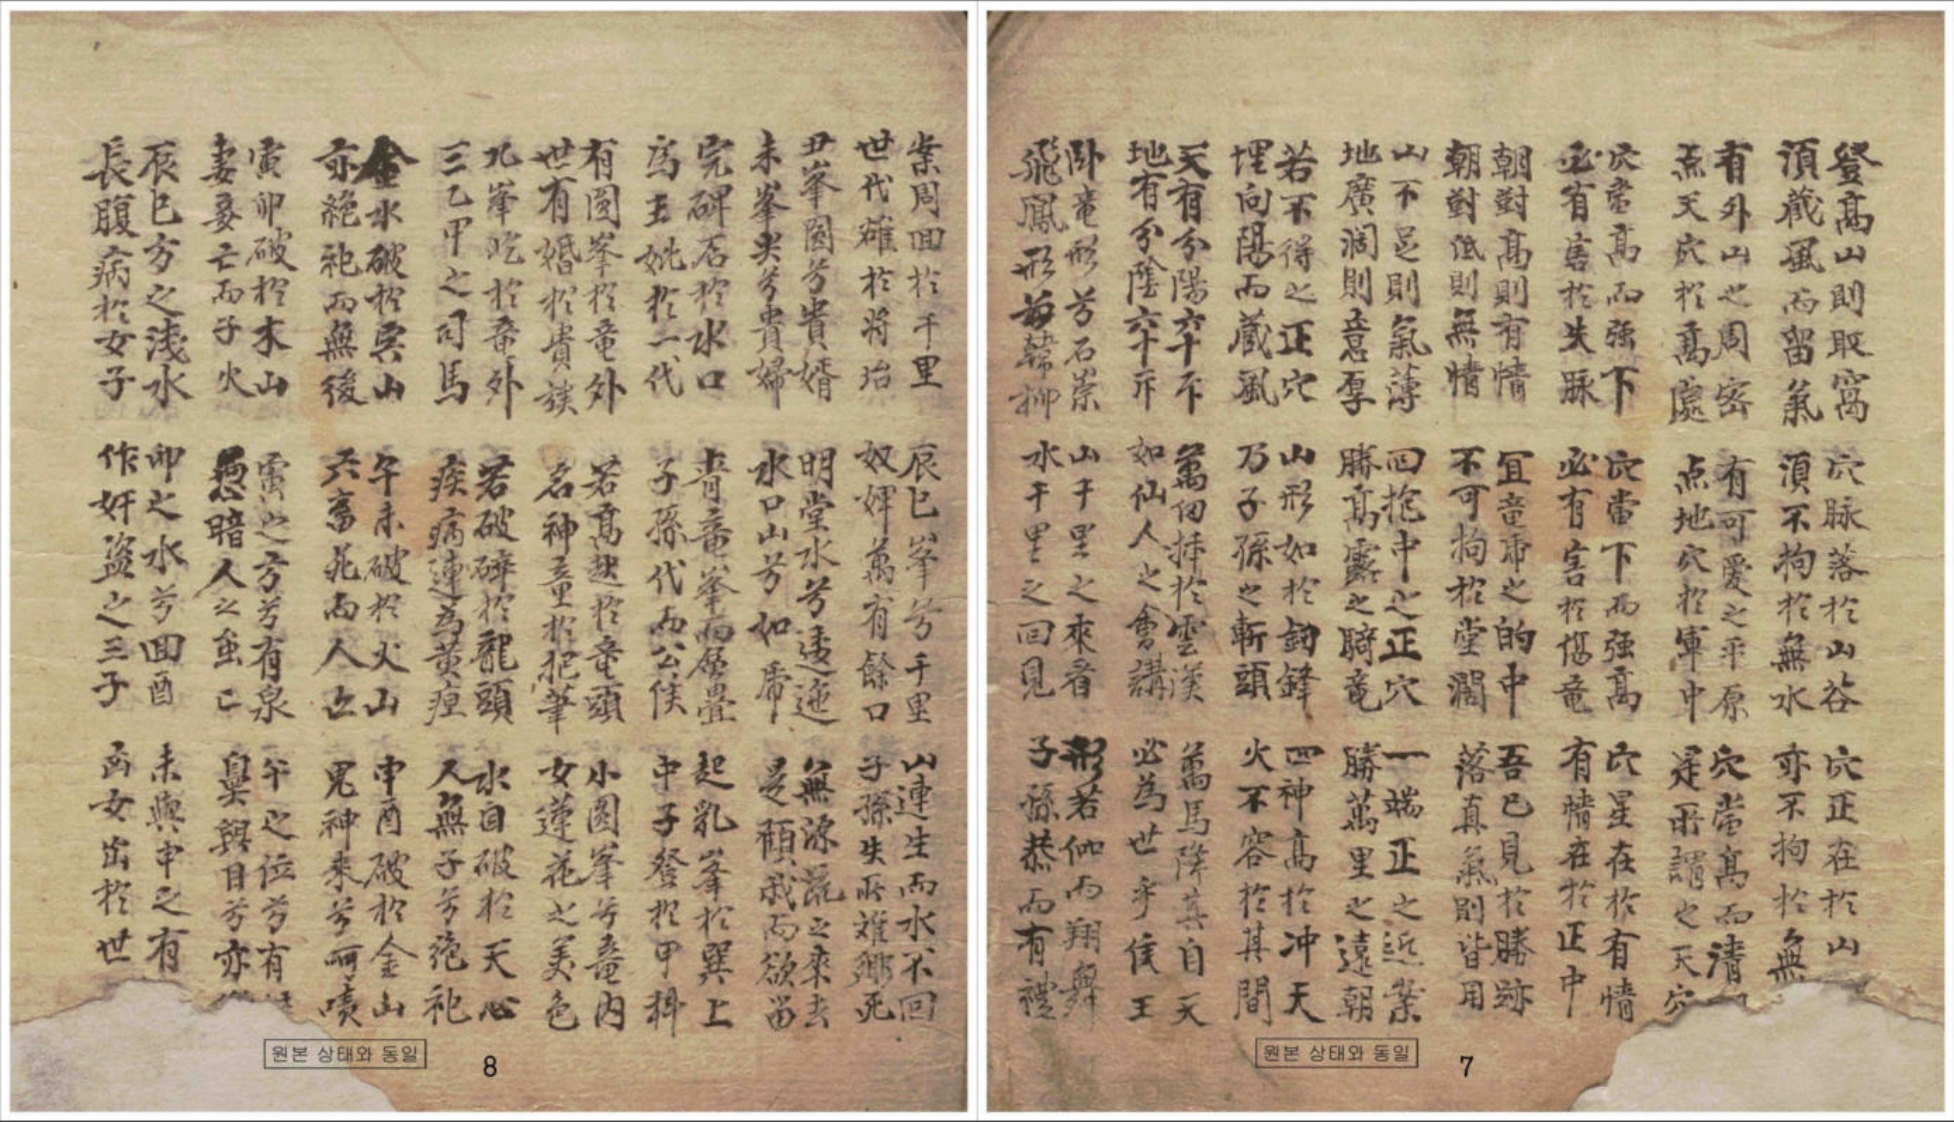 登高山則取窩
須藏風而留氣
穴脉落於山谷
須不拘於無水
穴正在於山
亦不拘於無
有外山之周密
点天穴於高處
有可愛之平原
点地穴於軍中
穴當高而清
是所謂之天穴
穴當高而强下
必有害於失脉
穴當下而强高
必有害於傷竜
穴星在於有情
有情在於正中
朝對高則有情
朝對低則無情
宜竜虎之的中
不可拘於堂濶
吾已見於勝跡
落真氣則皆用
山不足則氣薄
地廣濶則意厚
四抱中之正穴
勝高露之騎竜
一端正之近案
勝萬里之遠朝
若不得之正穴
埋向陽而藏風
山形如於釰鋒
乃子孫之斬頭
四神高於冲天
火不容於其間
天有分陽六十斤
地有分陰六十斤
萬仞揷於雲漢
如仙人之會講
萬馬降兵自天
必為世乎侯王
卧竜形兮石崇
飛鳳形兮韓柳
山千里之來看
水千里之回見
形若仙而翔舞
子孫恭而有禮
원본 상태와 동일
7
案周回於千里
世代雄於將
辰巳峯兮千里
奴婢萬有餘口
山連生而水不回
子孫失所難鄕死
丑峯圓兮貴婿
未峯尖兮貴婦
明堂水兮逶迤
水口山兮如虎
無源之來去
是顧我而欲留
完碑石於水口
為王於二代
青竜峯而層疊
子孫代而公侯
起乳峯於巽上
中子登於甲科
有圓峯於竜外
世有婚於貴族
若高於竜頭
名神童於把筆
小圓峯兮竜内
女蓮花之美色
北峯於竜外
三乙甲之司馬
若破碎於龍頭
疾病連為黃疸
水自破於天心
又無子兮絶祀
金水破於巽山
亦絶祀而無後
午未破於火山
六畜死而人亡
申酉破於金山
鬼神來兮呵嘖
寅卯破於木山
妻妾亡而子火
寅之方兮有泉
暗人之亡
午之位兮有
臭與目兮亦
辰巳方之浅水
長腹病於女子
卯之水兮回酉
作奸盗之三子
未與申之有
女出於世
원본 상태와 동일
8